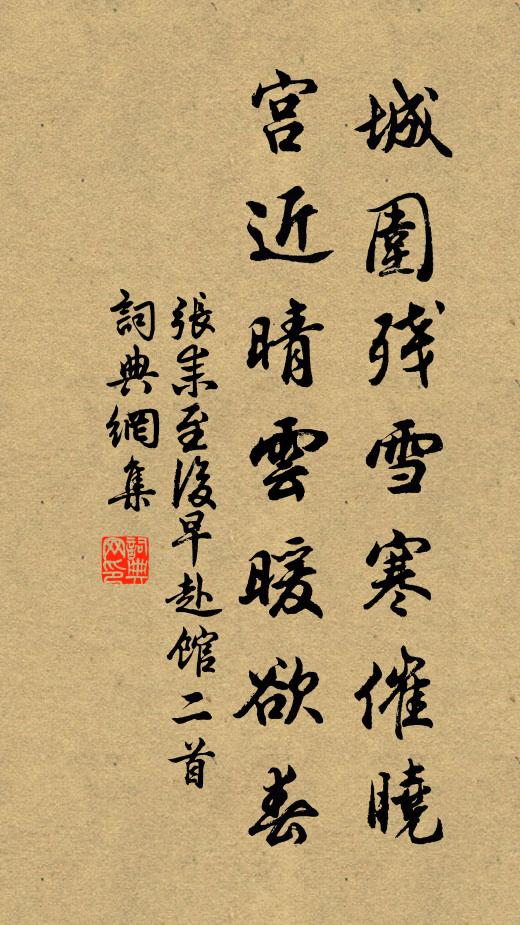 城圍残雪寒催曉
宮近晴雲暖欲春
張耒至後早赴館二首
詞典網集
詞典
网印